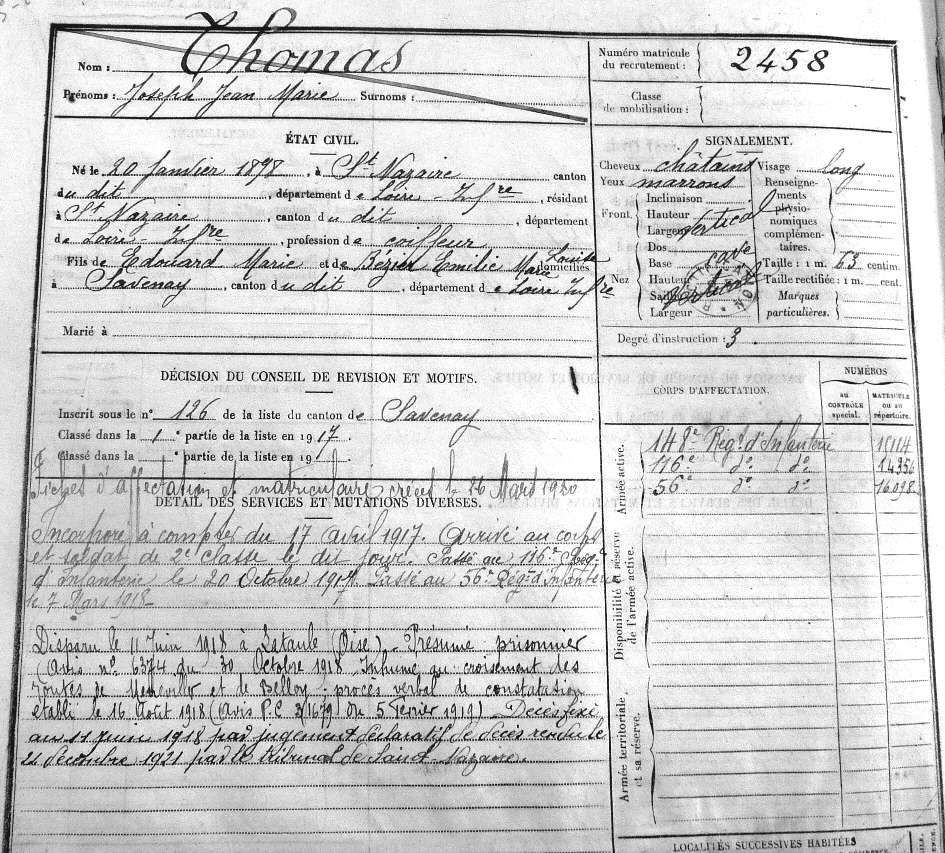 Nom : Thomas
Prénoms : Joseph Jean Marie Surnoms :
Numéro matricule du recrutement : 2458
Classe de mobilisation :
ÉTAT CIVIL.
Né le 20 Janvier 1898, à St Nazaire, canton
du dit, département de Loire-Infre, résidant
à St Nazaire, canton du dit, département
de Loire-Infre, profession de coiffeur
Fils de Edouard Marie et de Bezier Emilie Marie Louise domiciliés
à Savenay, canton du dit, département de Loire Infre
Marié à
SIGNALEMENT.
Cheveux châtains Visage long
Yeux marrons Renseignements physionomiques complémentaires.
Front. Inclinaison
Hauteur vertical
Largeur
Nez Dos
Base cave
Hauteur
Saillie
Largeur
Taille : 1 m. 63 centim.
Taille rectifiée : 1 m. cent.
Marques particulières.
Degré d'instruction : 3
DÉCISION DU CONSEIL DE REVISION ET MOTIFS.
Inscrit sous le n° 126 de la liste du canton de Savenay
Classé dans la 1e partie de la liste en 1917.
Classé dans la e partie de la liste en 191
Fiches d'affectation et matriculaire créées le 26 Mars 1920
CORPS D'AFFECTATION.
NUMÉROS
au CONTRÔLE spécial.
MATRICULE ou au répertoire.
Armée active.
148e Régt d'Infanterie
116e do do 14356
56e do do 16098
Disponibilité et réserve de l'armée active.
Armée territoriale et sa réserve.
DÉTAIL DES SERVICES ET MUTATIONS DIVERSES.
Incorporé à compter du 17 avril 1917. Arrivé au corps
et soldat de 2e classe le dit jour. Passé au 116e Régt
d'Infanterie le 20 Octobre 1917. Passé au 56e Régt d'Infanterie
le 7 Mars 1918
Disparu le 11 Juin 1918 à Lataule (Oise). Présumé prisonnier
(Avis n° 6374 du 30 Octobre 1918 Inhumé au croisement des
routes de et de Belloy ; procès verbal de constatation
établi le 16 Août 1918 (avis P.C. du 5 février 1919) Décès fixé
au 11 juin 1918 par jugement déclaratif de décès rendu le
décembre 1921 par le Tribunal de Saint-Nazaire.
LOCALITÉS SUCCESSIVES HABITÉES